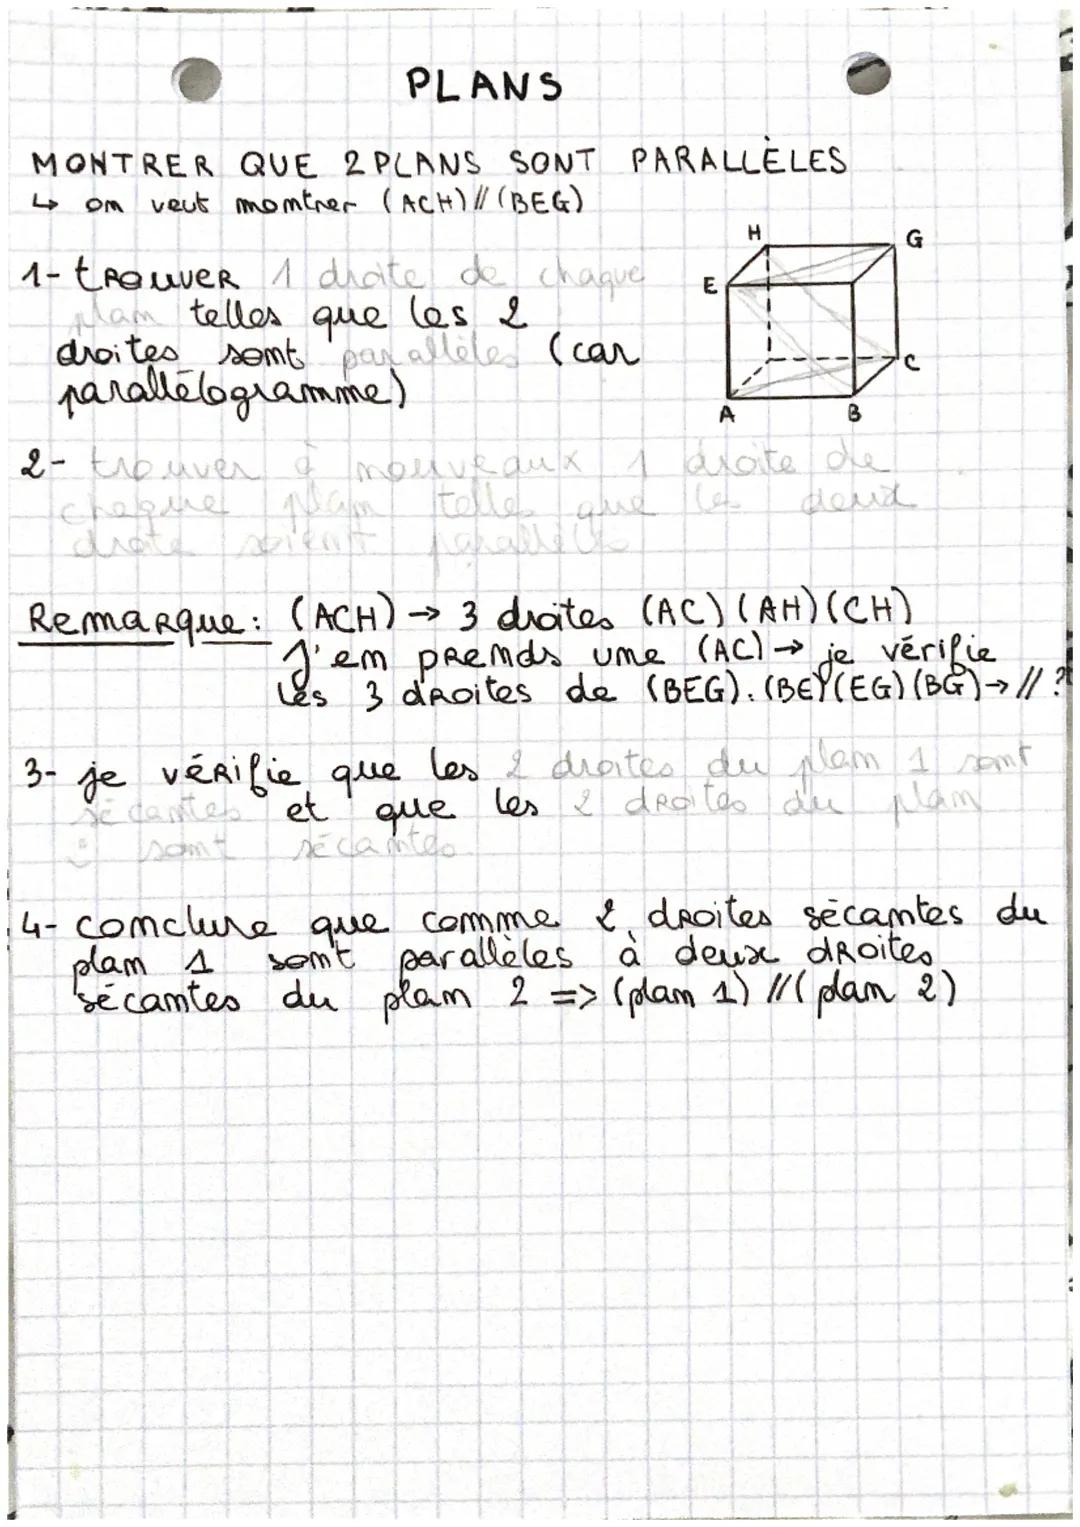 PLANS
MONTRER QUE 2 PLANS SONT PARALLÈLES
↳ on veut montrer (ACH) // (BEG)
H
G
E
C
A
B
1- TROUVER 1 droite de chaque
plan telles que les 2
droites sont parallèles (car
parallélogramme)
2- trouver à nouveaux 1 droite de
chaque plan telles que les deux
droite soient parallèles
Remarque: (ACH) → 3 droites (AC) (AH) (CH)
J'en prends une (AC) → je vérifie
les 3 droites de (BEG): (BE) (EG) (BG) → // ?
3- je vérifie que les 2 droites du plan 1 sont
sécantes et que les 2 droites du plan
sont sécantes
4- conclure que comme 2 droites sécantes du
plan 1 sont parallèles à deux droites
sécantes du plan 2 => (plan 1) // (plan 2)